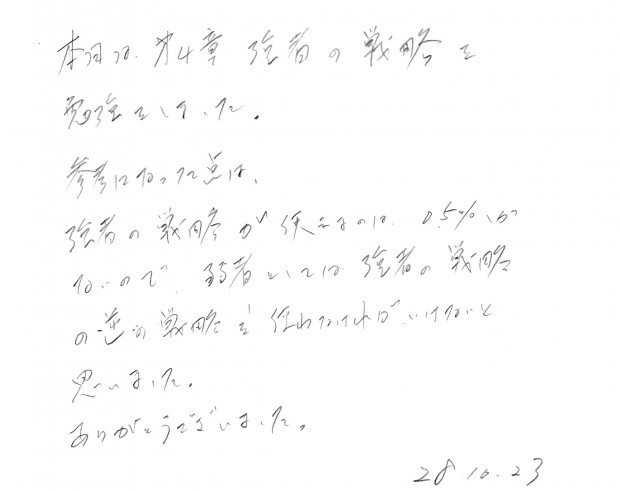 本日は、第4章 強者の戦略を
勉強をしました。
参考になった点は、
強者の戦略が使えるのは、0.5%しか
ないので、弱者としては強者の戦略
の逆の戦略を使わなければいけないと
思いました。
ありがとうございました。
28 10.23